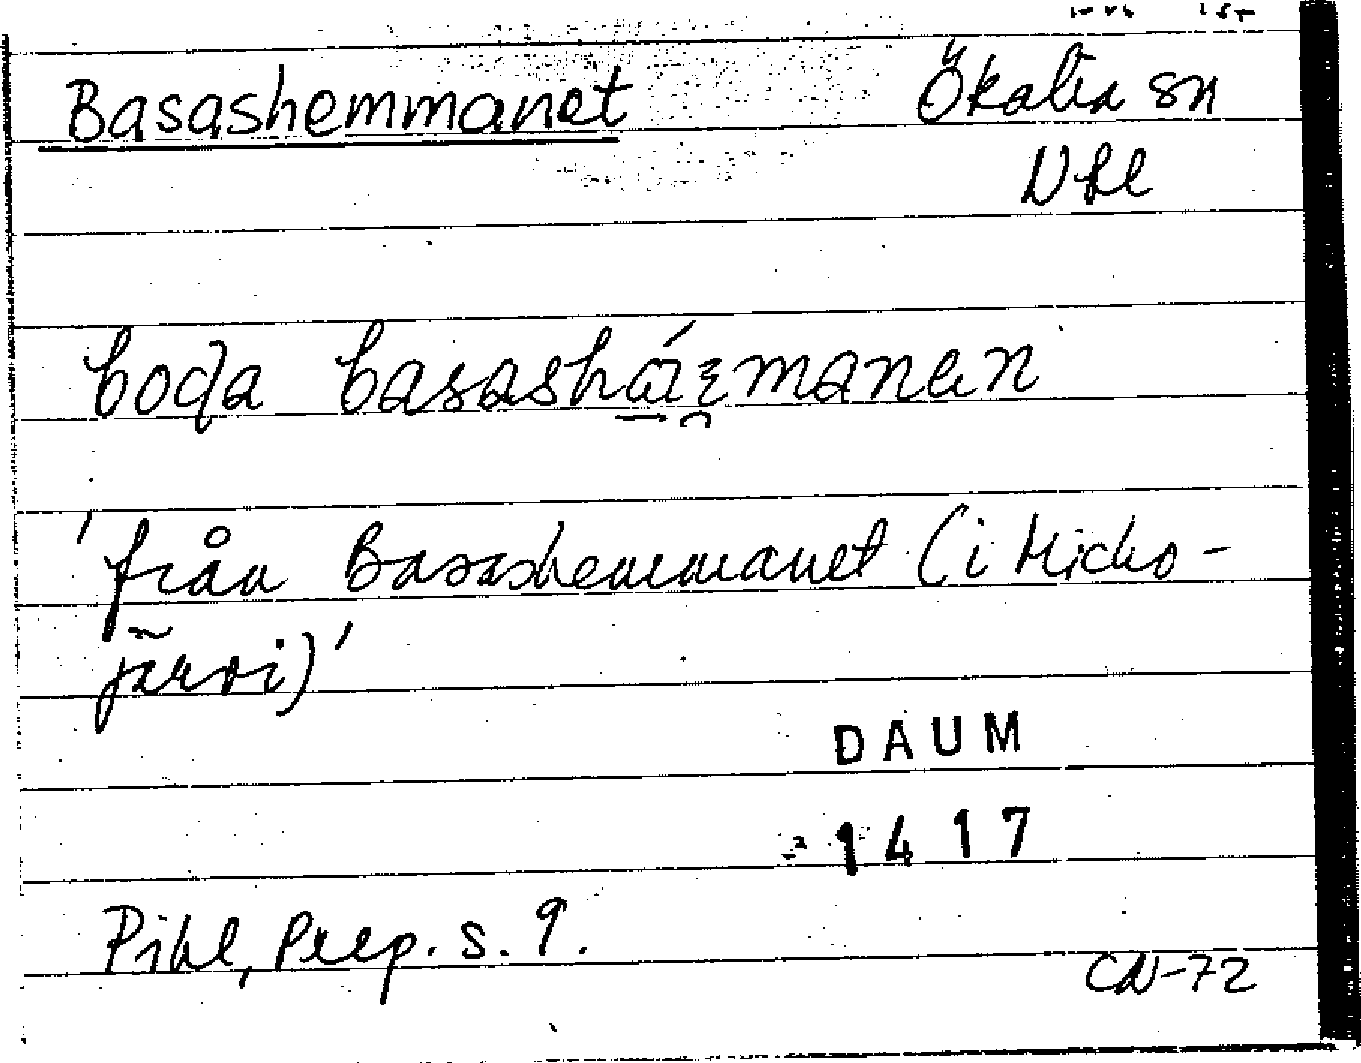 Basashemmanet
Ökalix sn
Nbl
basashá̱rmanen
'från Basashemmanet (i Hicko-
järvi)'
DAUM
1417
Pihl, Prep. s. 9.
CN-72